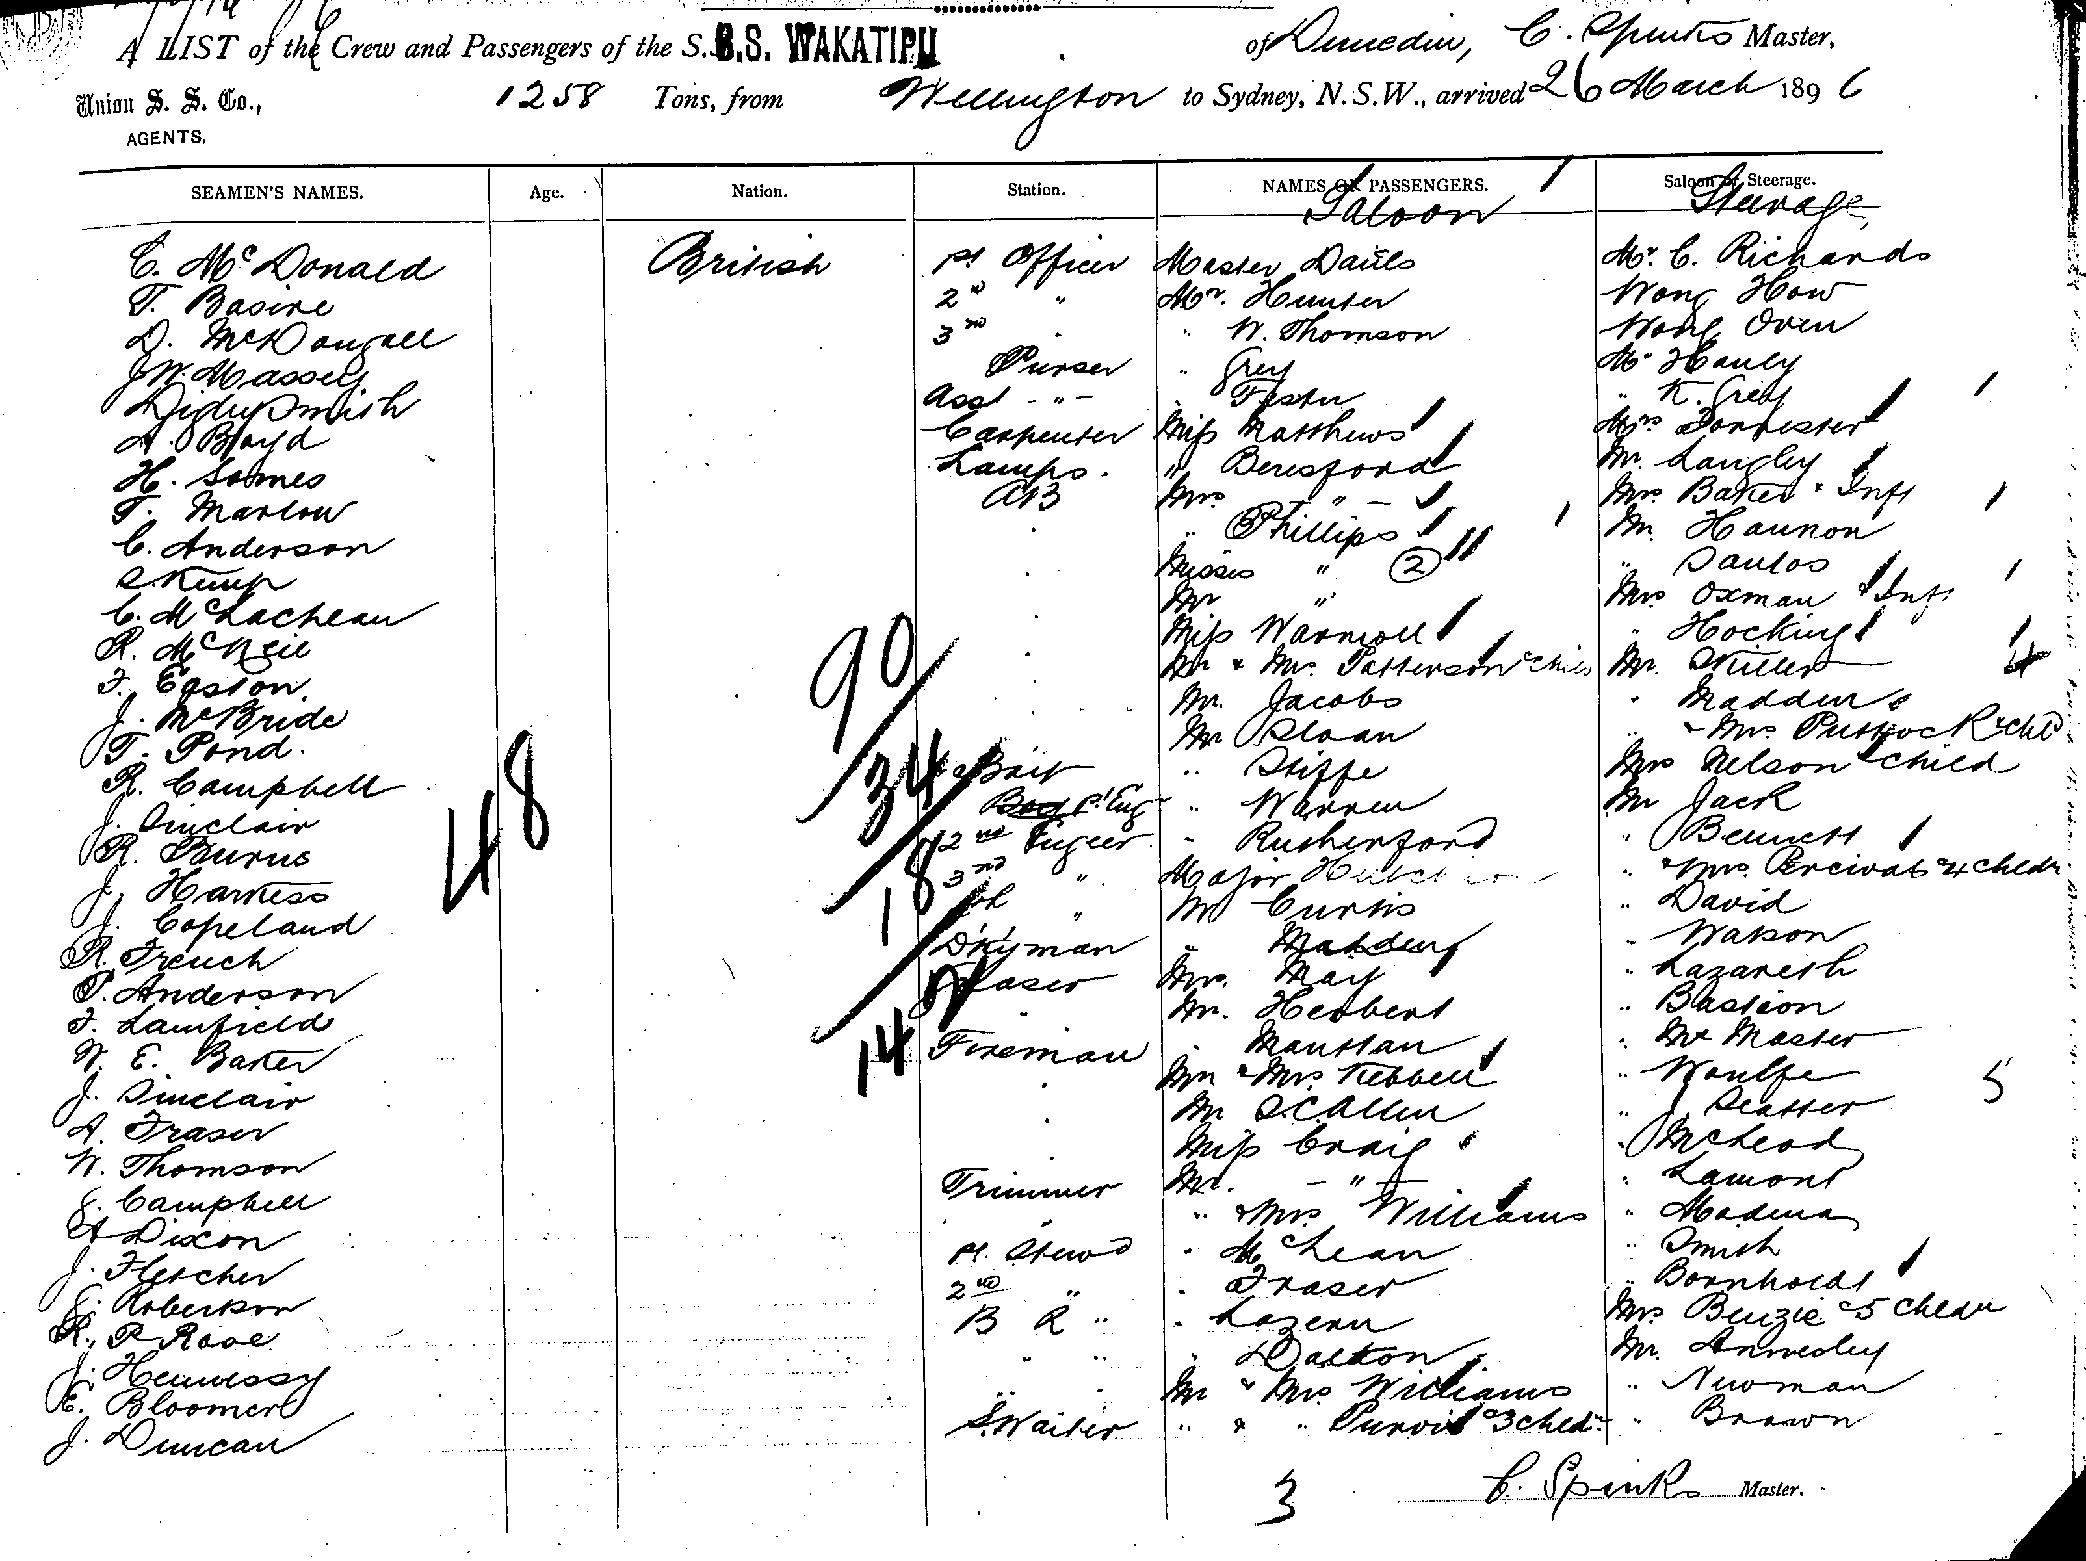 A LIST of the Crew and Passengers of the S.S. S.S. WAKATIPU of Dunedin, C. Spinks Master,
Union S. S. Co., 1258 Tons, from Wellington to Sydney, N.S.W., arrived 26 March 1896
AGENTS.
SEAMEN'S NAMES. Age. Nation. Station. NAMES OF PASSENGERS. Saloon or Steerage.
Saloon Steerage
C. McDonald British 1st Officer Master Davies Mr. C. Richards
T. Basire 2nd " Mr. Hunter Wong How
D. McDougall 3rd " " W. Thomson Wong Oven
J W. Massey Purser " Grey Mr Hauly
Digby Smith Asst - " - " Foster " K. Grey
A. Boyd Carpenter Miss Matthews Mrs Forrester
H. Somes Lamps. " Beresford Mr. Langley
T. Marlow AB Mrs " - Mrs Baker & Inft
C. Anderson " Phillips Mr. Hannon
S Kemp Misses " 2 " Santos
C. McLachlan Mr " Mrs Oxman & Inft
R. McNeil Miss Warmoll " Hocking
F. Easton Mr & Mrs Patterson & child Mr. Skiller
J. McBride Mr. Jacobs " Madden
T. Pond. Mr Sloan " & Mrs Puttock & chld
R. Campbell " Stiffe Mrs Nelson & child
J. Sinclair 1st Eng " Warren Mr Jack
R. Burns 2nd Engeer " Rutherford " Bennett
J. Harkess 3rd " Major " & Mrs Percival & 4 chldn
J. Copeland 4th " Mr Curtis " David
R. French D'kyman " Madden " Watson
P. Anderson Greaser Mrs. May " Lazareth
F. Lamfield " Mr. Herbert " Bastion
W. E. Baker Fireman " Manttan " Mr Master
J. Sinclair Mr & Mrs Kebbell " Woulfe
A. Fraser Mr S.C. Allen " J. Slatter
W. Thomson Miss Craig " McLeod
J. Campbell Trimmer Mr. - " - " Lamont
A Dixon " " & Mrs Williams " Madena
J. Fletcher 1st. Stewd " McLean " Smith
J. Robertson 2nd " " Fraser " Bornholdt
R. P. Rooe B R " " Lazern Mrs Benzie & 5 chldn
J. Hennessy " " " Dalton Mr. Annesley
E. Bloomer " " Mr & Mrs Williams " Newman
J. Duncan S. Waiter " & " Purvis & 3 chld. " Brown
48
90
34
18
14
4
5
3
C. Spinks Master.